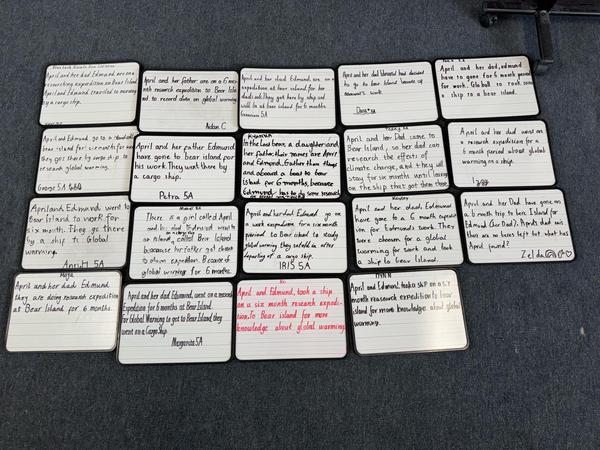 April and her dad Edmund are on a
researching expedition on Bear Island.
April and Edmund traveled to norway
by a cargo ship.
April and her father are on a 6 month
research expedition to Bear Island
to record data on global warming
Aidan C
April and her dad Edmund are on an
expedition at bear island for her
dad's job. They got here by ship and
will be at bear island for 6 months.
5A
April and her dad Edmund has decided
to go to bear island because of
work.
April and her dad, edmund
have to gone for 6 month period
for work. Global to took
a ship to a bear island.
April and Edmund go to a
bear island for six months for work
they got there by cargo ship, to
research global warming.
George 5A
April and her father Edmund
have gone to bear island for
his work. They went there by
a cargo ship.
Petra 5A
In the last bear, a daughter and
her father, their names are April
and Edmund. Gather their things
and aboard a boat to bear
Island for 6 months, because
Edmund has to do some research
April and her Dad came to
Bear Island, so her dad can
research the effects of
climate change, and they will
stay for six months until leaving
on the ship that got them there.
April and her dad went on
a research expedition for a
6 month period about global
warming on a ship.
Izzy
April and Edmund went to
Bear Island to work for
six month. They go there
by a ship to Global
warming.
5A
There is a girl called April
and her dad Edmund went to
an Island, called Bear Island
because her father got chosen
to do an expedition. Because of
global warming for 6 months.
April and her dad Edmund go on
a work expedition for a six month
period to Bear Island to study
global warming they settled in after
departing of a cargo ship.
IRIS 5A
April and her dad, Edmund
have gone to a 6 month expedit
ion for Edmunds work. They
were chosen for a global
warming for work and took
a ship to Bear Island.
April and her Dad have gone
on a 6 month trip to Bear Island for
Edmund (her Dad). April's dad said
that are no bears left but what has
April found?
Zelda
Maja
April and her dad Edmund.
They are doing research expedition
at Bear Island for 6 months.
April and her dad Edmund, went on a research
Expedition for 6 months at Bear Island.
for Global Warming to get to Bear Island, they
went on a Cargo Ship
Margarita 5A
April and Edmund, took a ship
on a six month research expedi-
tion. To Bear island for more
knowledge about global warming
April and Edmund, took a ship on a six
month research expedition to bear
island for more knowledge about global
warming.